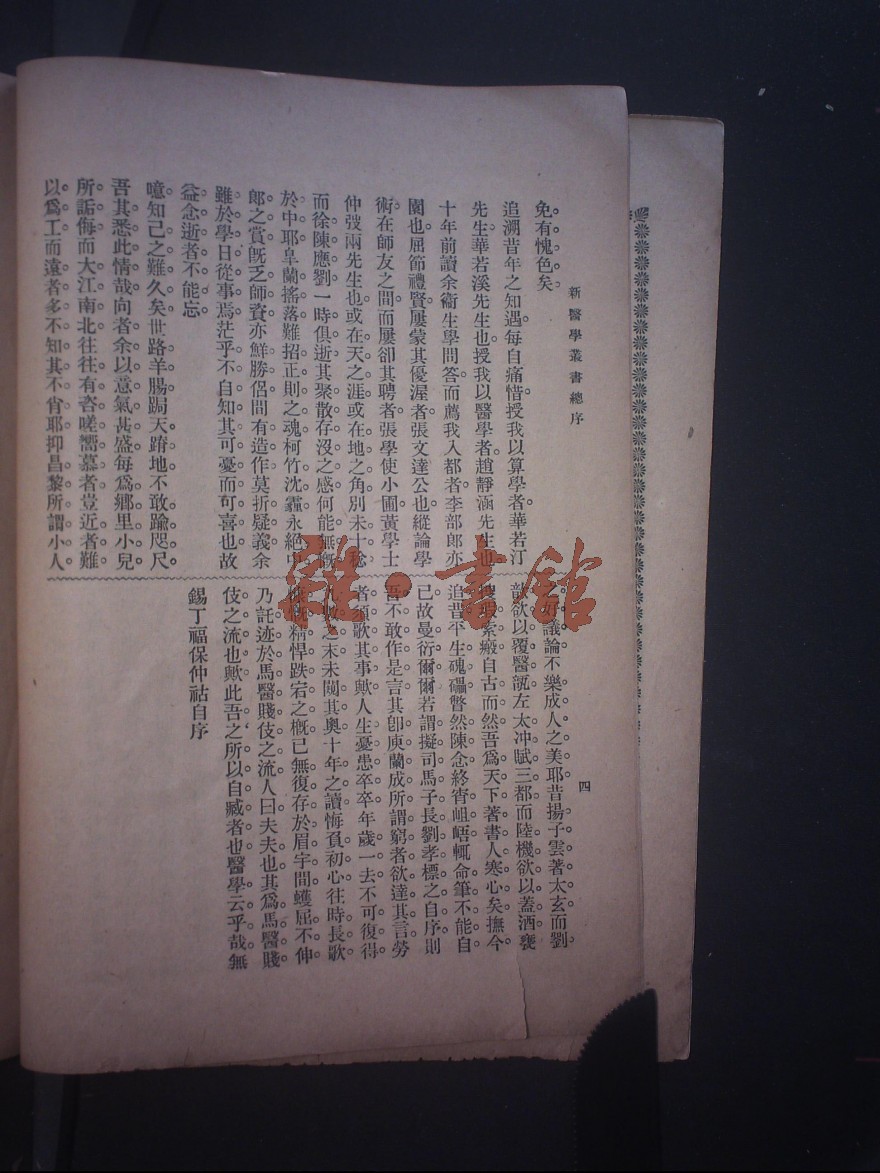 新醫學叢書總序
四
免有愧色矣
追溯昔年之知遇每自痛惜授我以算學者華若汀
先生華若溪先生也授我以醫學者趙靜涵先生也
十年前讀余衞生學問答而薦我入都者李部郎亦
園也屈節禮賢屢蒙其優渥者張文達公也縱論學
術在師友之間而屢卻其聘者張學使小圃黃學士
仲弢兩先生也或在天之涯或在地之角別未十稔
而徐陳應劉一時俱逝其聚散存沒之感何能無慨
於中耶皐蘭搖落難招正則之魂柯竹沈霾永絕中
郎之賞旣乏師資亦鮮勝侶間有造作莫折疑義余
雖於學日從事焉茫乎不自知其可憂而可喜也故
益念逝者不能忘
噫知己之難久矣世路羊腸跼天蹐地不敢踰咫尺
吾其悉此情哉向者余以意氣甚盛每爲鄉里小兒
所詬侮而大江南北往往有咨嗟嚮慕者豈近者難
以爲工而遠者多不知其不肖耶抑昌黎所謂小人
好議論不樂成人之美耶昔揚子雲著太玄而劉
龍欲以覆醫瓿左太冲賦三都而陸機欲以蓋酒甕
索瘢自古而然吾爲天下著書人寒心矣撫今
追昔平生魂礧瞥然陳念終宵岨峿輒命筆不能自
已故曼衍爾爾若謂擬司馬子長劉孝標之自序則
吾不敢作是言其卽庾蘭成所謂窮者欲達其言勞
者須歌其事歟人生憂患卒卒年歲一去不可復得
之末未闚其奧十年之讀悔負初心往時長歌
慨精悍跌宕之概已無復存於眉宇間蠖屈不伸
乃託迹於馬醫賤伎之流人曰夫夫也其爲馬醫賤
伎之流也歟此吾之所以自臧者也醫學云乎哉無
錫丁福保仲祜自序
雜·書館